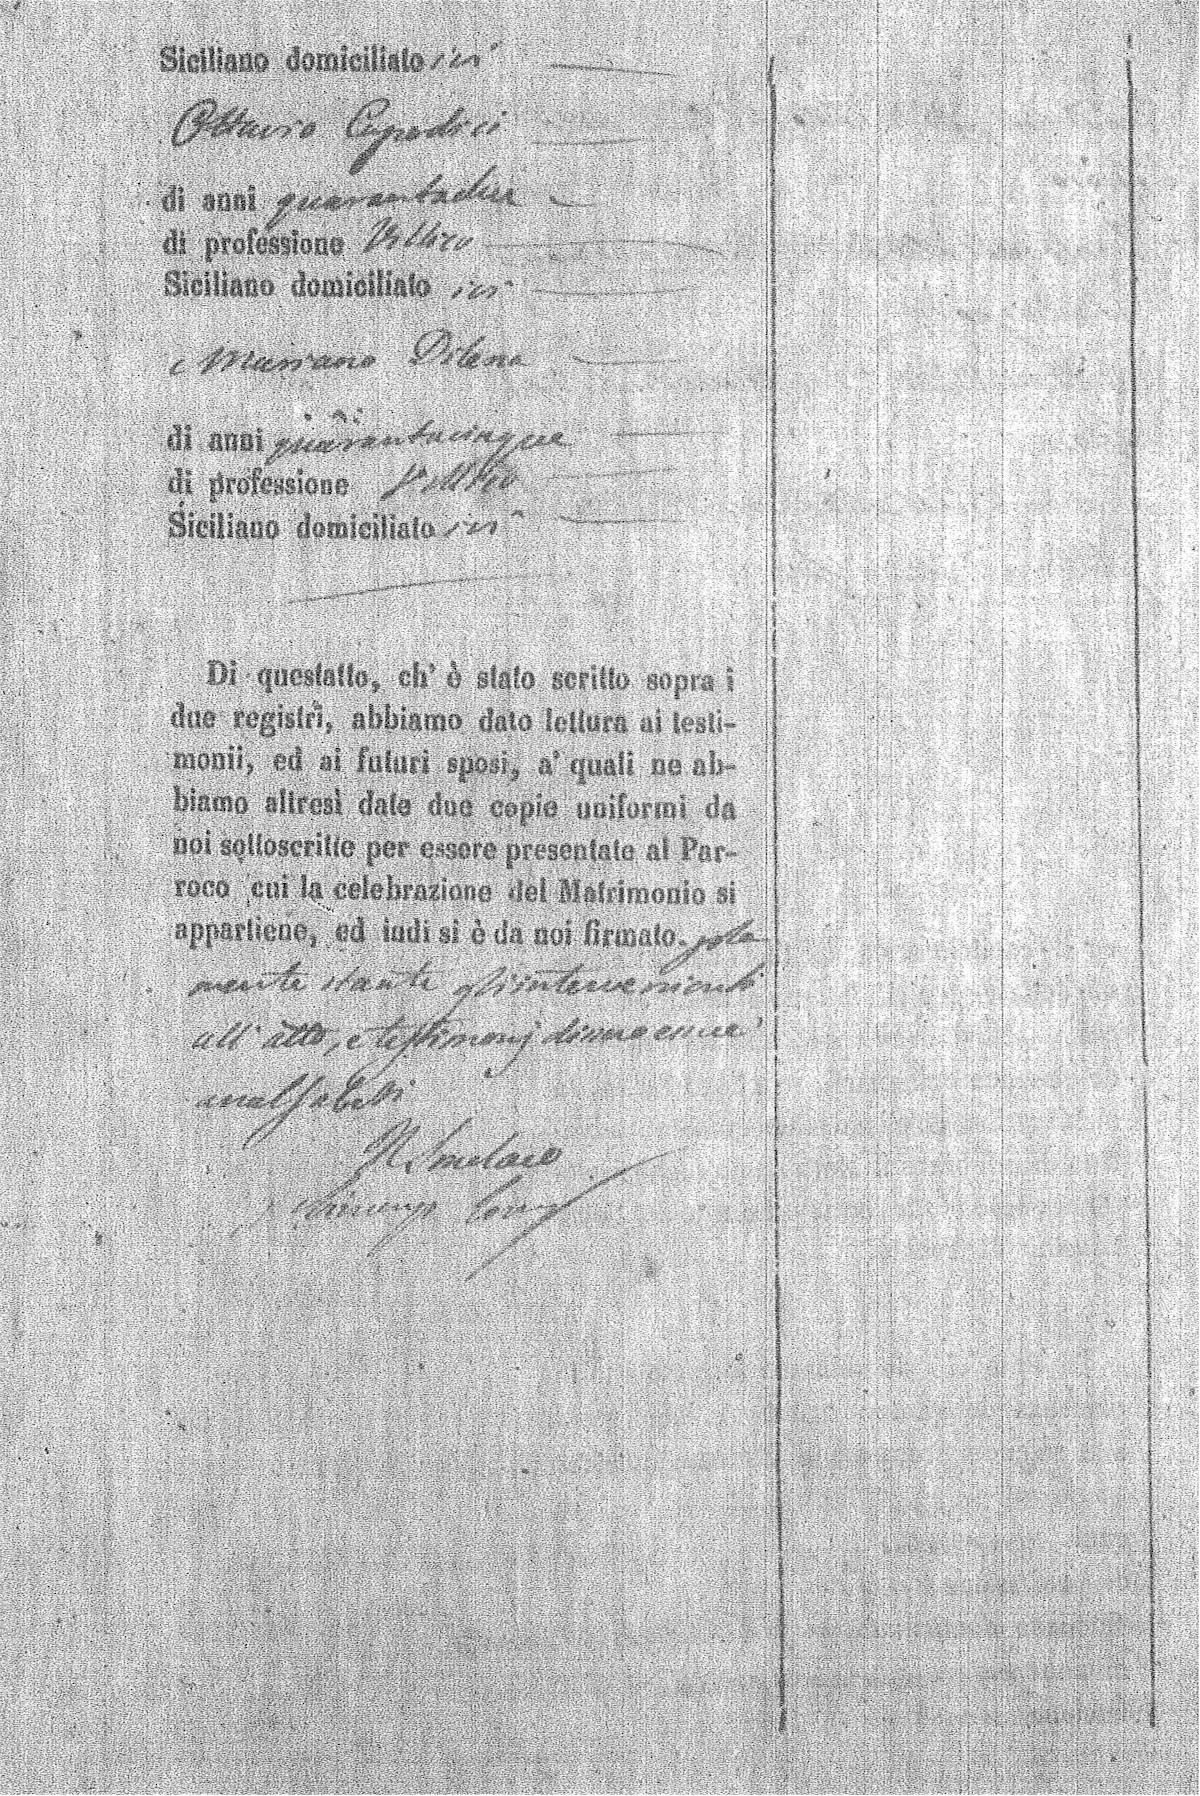 Siciliano domiciliato ivi
Ottavio Capodici
di anni quarantadue
di professione Villico
Siciliano domiciliato ivi
e Mariano Dilena
di anni quarantacinque
di professione Villico
Siciliano domiciliato ivi
Di questatto, ch' è stato scritto sopra i
due registri, abbiamo dato lettura ai testi-
monii, ed ai futuri sposi, a' quali ne ab-
biamo altresì date due copie uniformi da
noi sottoscritte per essere presentate al Par-
roco cui la celebrazione del Matrimonio si
appartiene, ed indi si è da noi firmato. sola
mente stante gl'intervenienti
all' atto, e testimonj
analfabeti
Il Sindaco